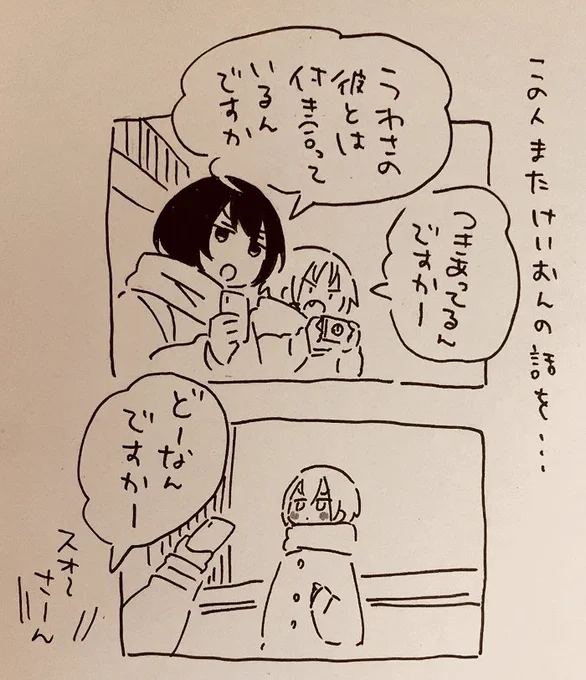 この人またけいおんの話を…
うわさの
彼とは
付き合って
いるん
ですか
つきあってるん
ですかー
どーなん
ですかー
スオ～
さーん